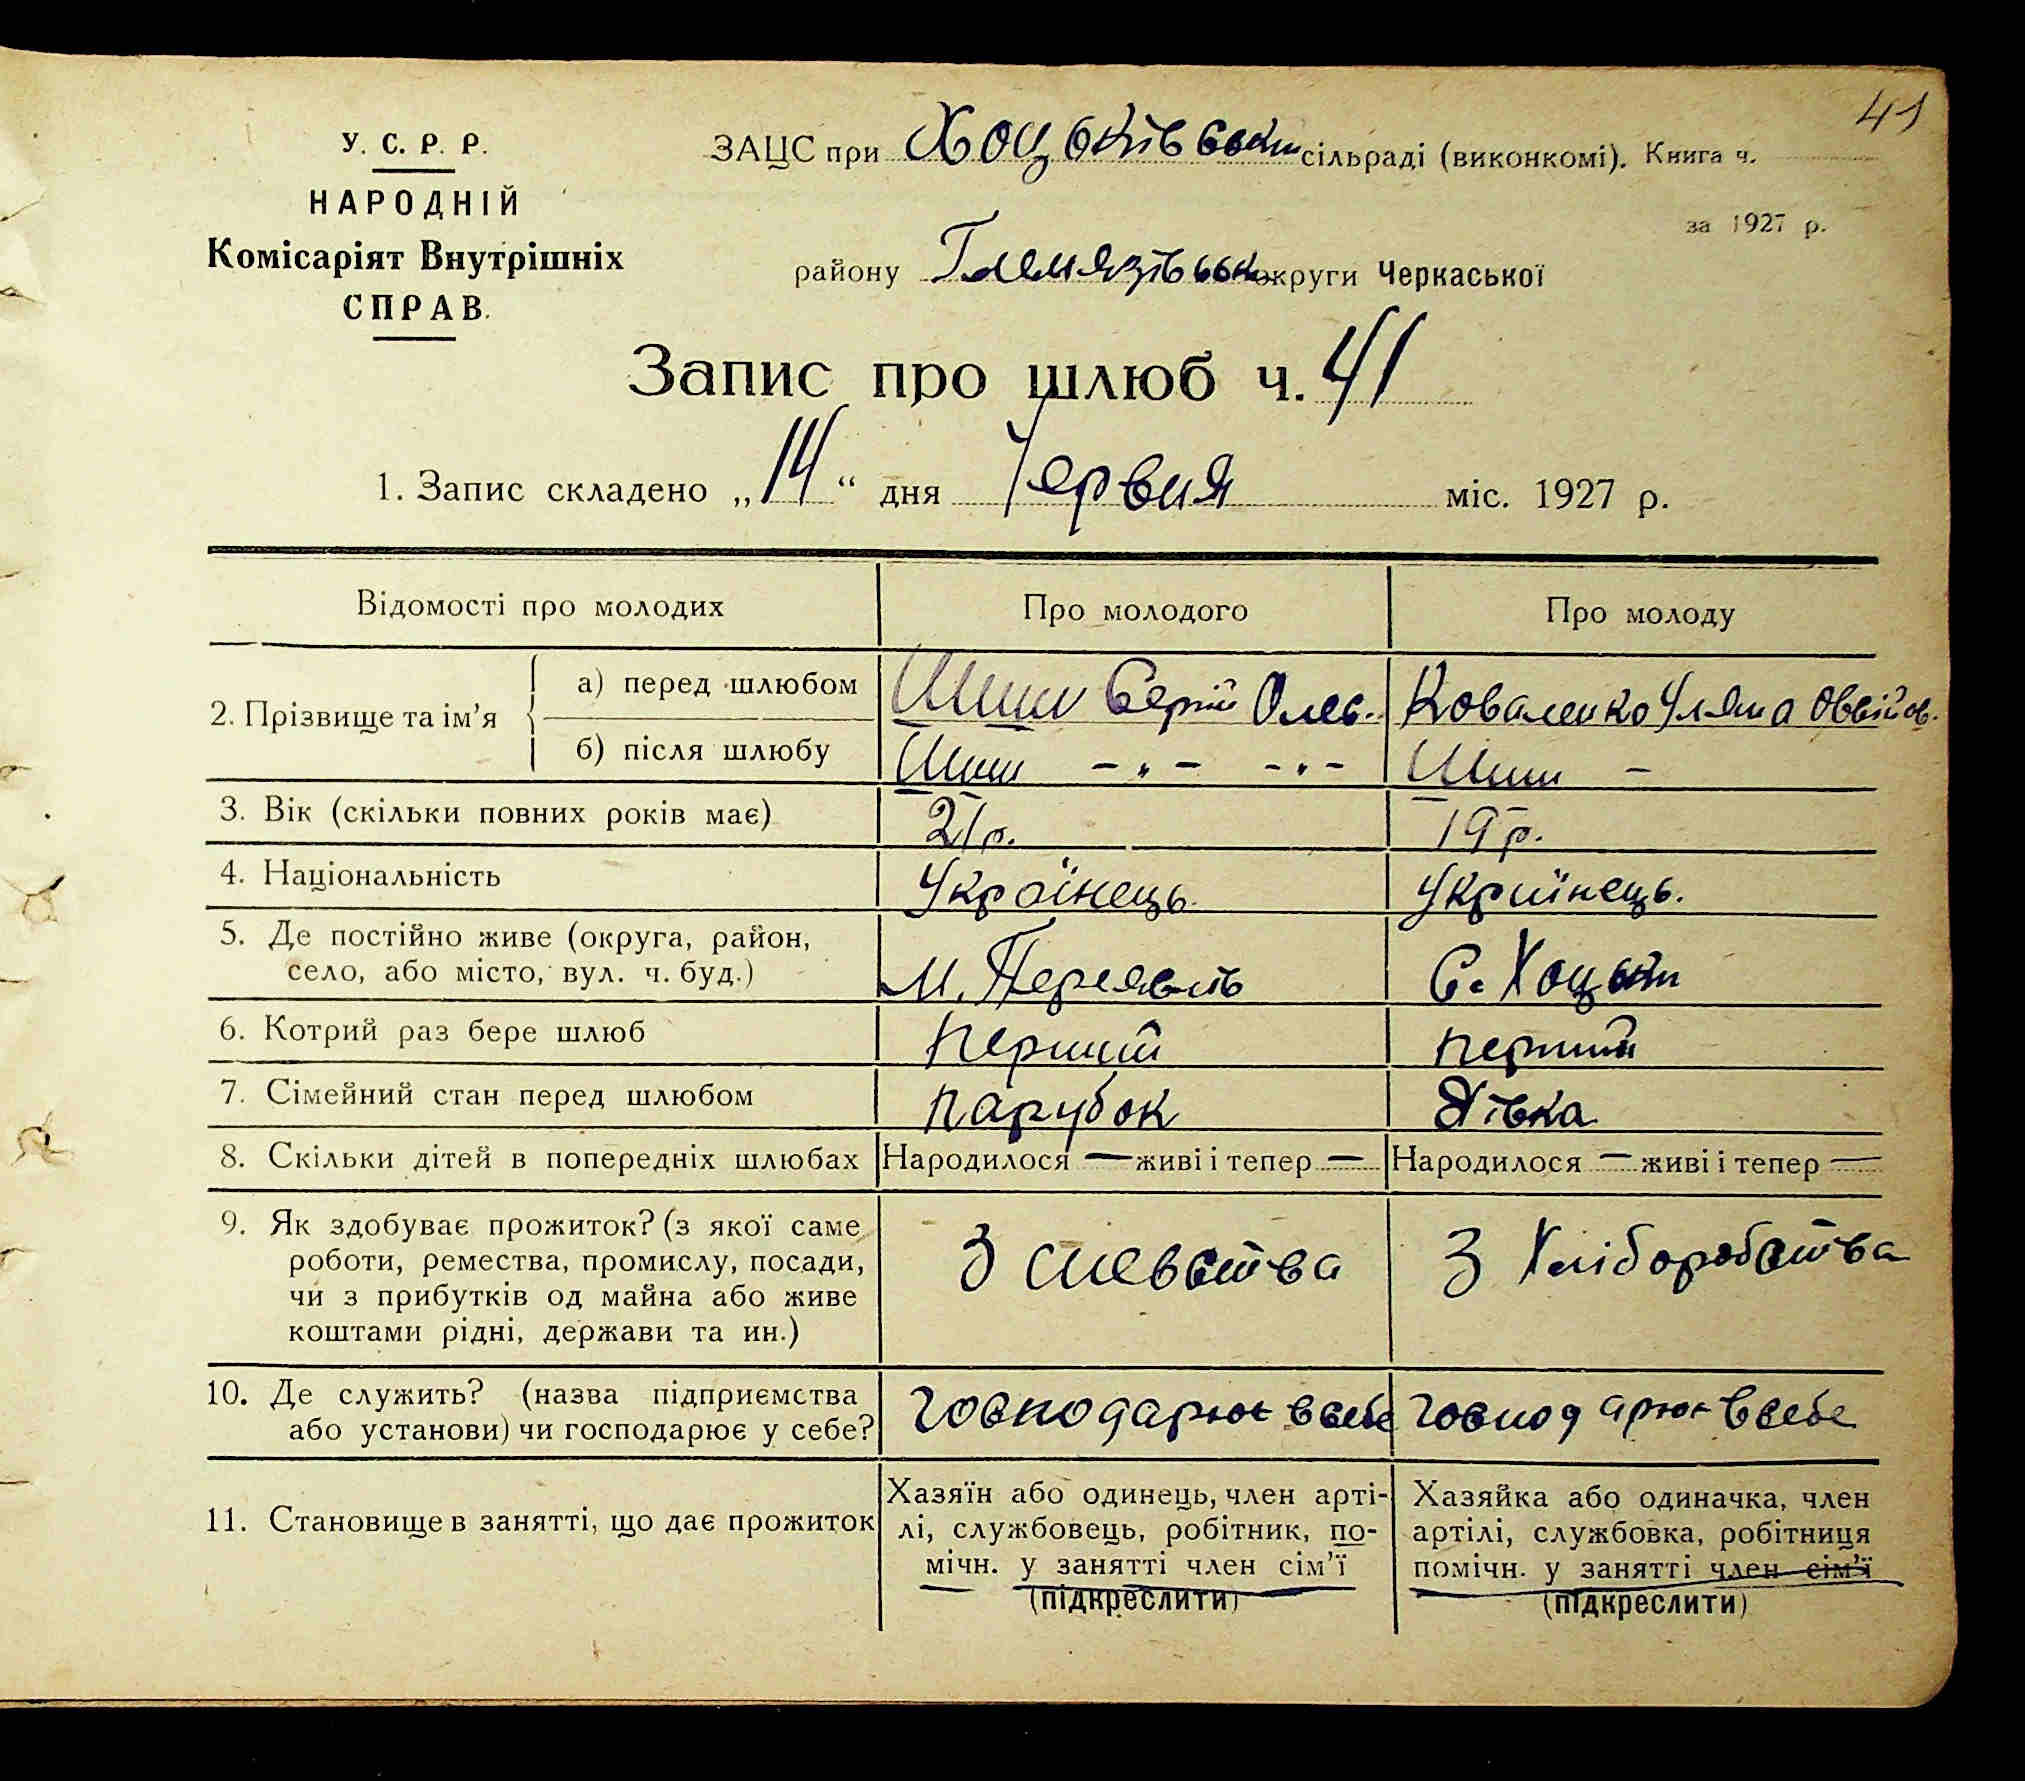 41
У. С. Р. Р.
НАРОДНІЙ
Комісаріят Внутрішніх
СПРАВ.
ЗАЦС при Хоцьківськ сільраді (виконкомі). Книга ч.
за 1927 р.
району Гельмязівськ округи Черкаської
Запис про шлюб ч. 41
1. Запис складено „14“ дня Червня міс. 1927 р.
Відомості про молодих Про молодого Про молоду
2. Прізвище та ім'я
а) перед шлюбом Шиш Сергій Олек. Коваленко Уляна Овсійов.
б) після шлюбу Шиш -"- -"- Шиш -
3. Вік (скільки повних років має) 21 р. 19 р.
4. Національність Українець. Українець.
5. Де постійно живе (округа, район,
село, або місто, вул. ч. буд.) м. Переяслів С. Хоцьки
6. Котрий раз бере шлюб перший перший
7. Сімейний стан перед шлюбом парубок Дівка
8. Скільки дітей в попередніх шлюбах Народилося — живі і тепер — Народилося — живі і тепер —
9. Як здобуває прожиток? (з якої саме
роботи, ремества, промислу, посади,
чи з прибутків од майна або живе
коштами рідні, держави та ин.)
З З Хліборобства
10. Де служить? (назва підприємства
або установи) чи господарює у себе?
господарює в себе господарює в себе
11. Становище в занятті, що дає прожиток
Хазяїн або одинець, член арті-
лі, службовець, робітник, по-
мічн. у занятті член сім'ї
(підкреслити)
Хазяйка або одиначка, член
артілі, службовка, робітниця
помічн. у занятті член сім'ї
(підкреслити)